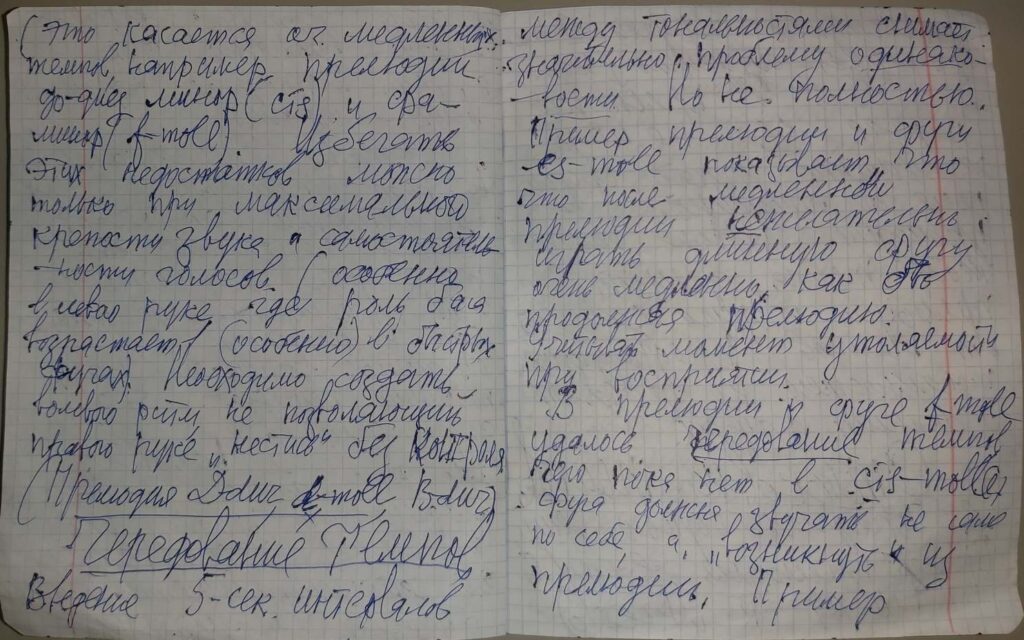 (Это касается оч. медленных
темпов, например прелюдии
до-диез минор (cis) и фа-
минор (f-moll). Избегать
этих недостатков можно
только при максимального
крепости звука и самостоятель
-ности голосов (особенно
в левой руке, где роль баса
возрастает (особенно) в быстрых
фугах). Необходимо создать
волевого ритм, не позволяющий
правого руке „нестись" без контроля
(Прелюдия D-dur d-moll B-dur)
Чередование Темпов
Введение 5-сек. интервалов
между тональностями снимает
значительно проблему одинако-
-вости. Но не полностью.
Пример прелюдии и фуги
es-moll показывает, что
что после медленной
прелюдии нежелательно
играть длинную фугу
очень медленно, как бы
продолжая прелюдию.
Учитывая момент утомляемости
при восприятии.
В прелюдии и фуге f-moll
удалось чередование темпов
чего пока нет в cis-moll
фуга должна звучать не сама
по себе, а „возникнуть" из
прелюдии. Пример